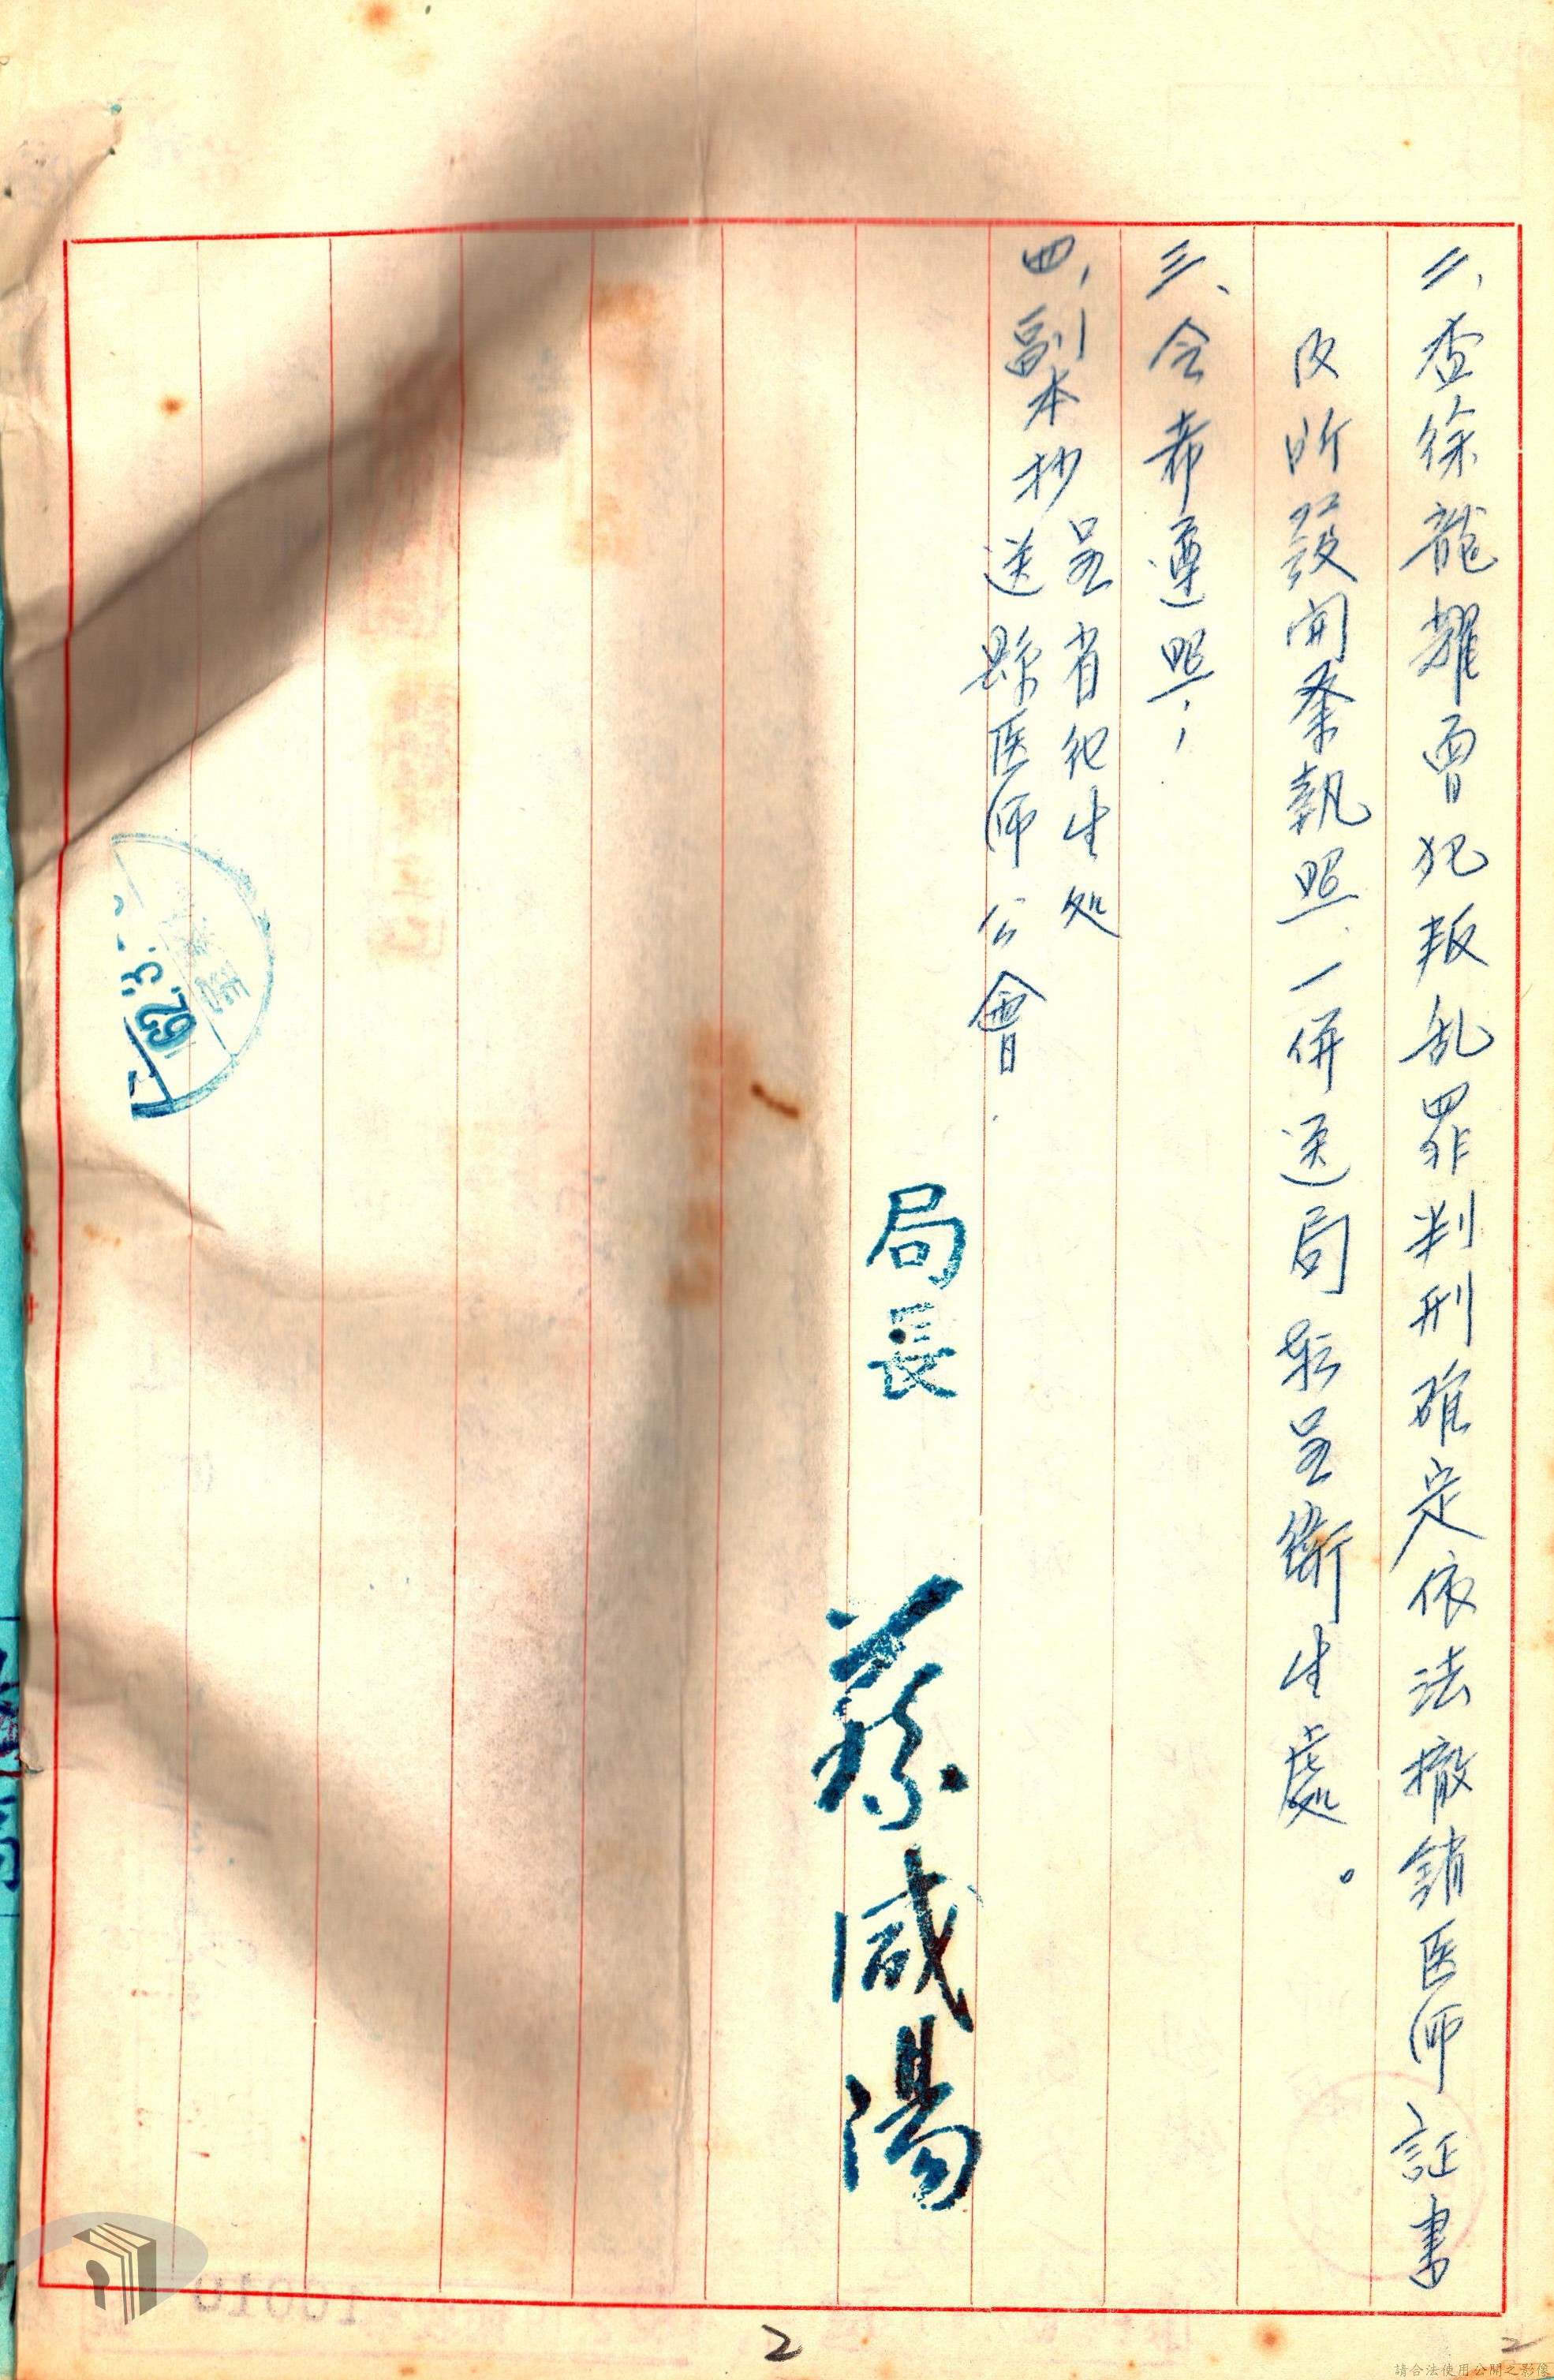 二、查徐龍耀曾犯叛乱罪判刑確定依法撤銷医师証書
及所發開業執照、一併送局彙呈衛生處。
三、令希遵照；
四、副本抄
呈省衛生处
送縣医师公會.
局長 蔡咸湯
62.3.
2
2
請合法使用公開之影像